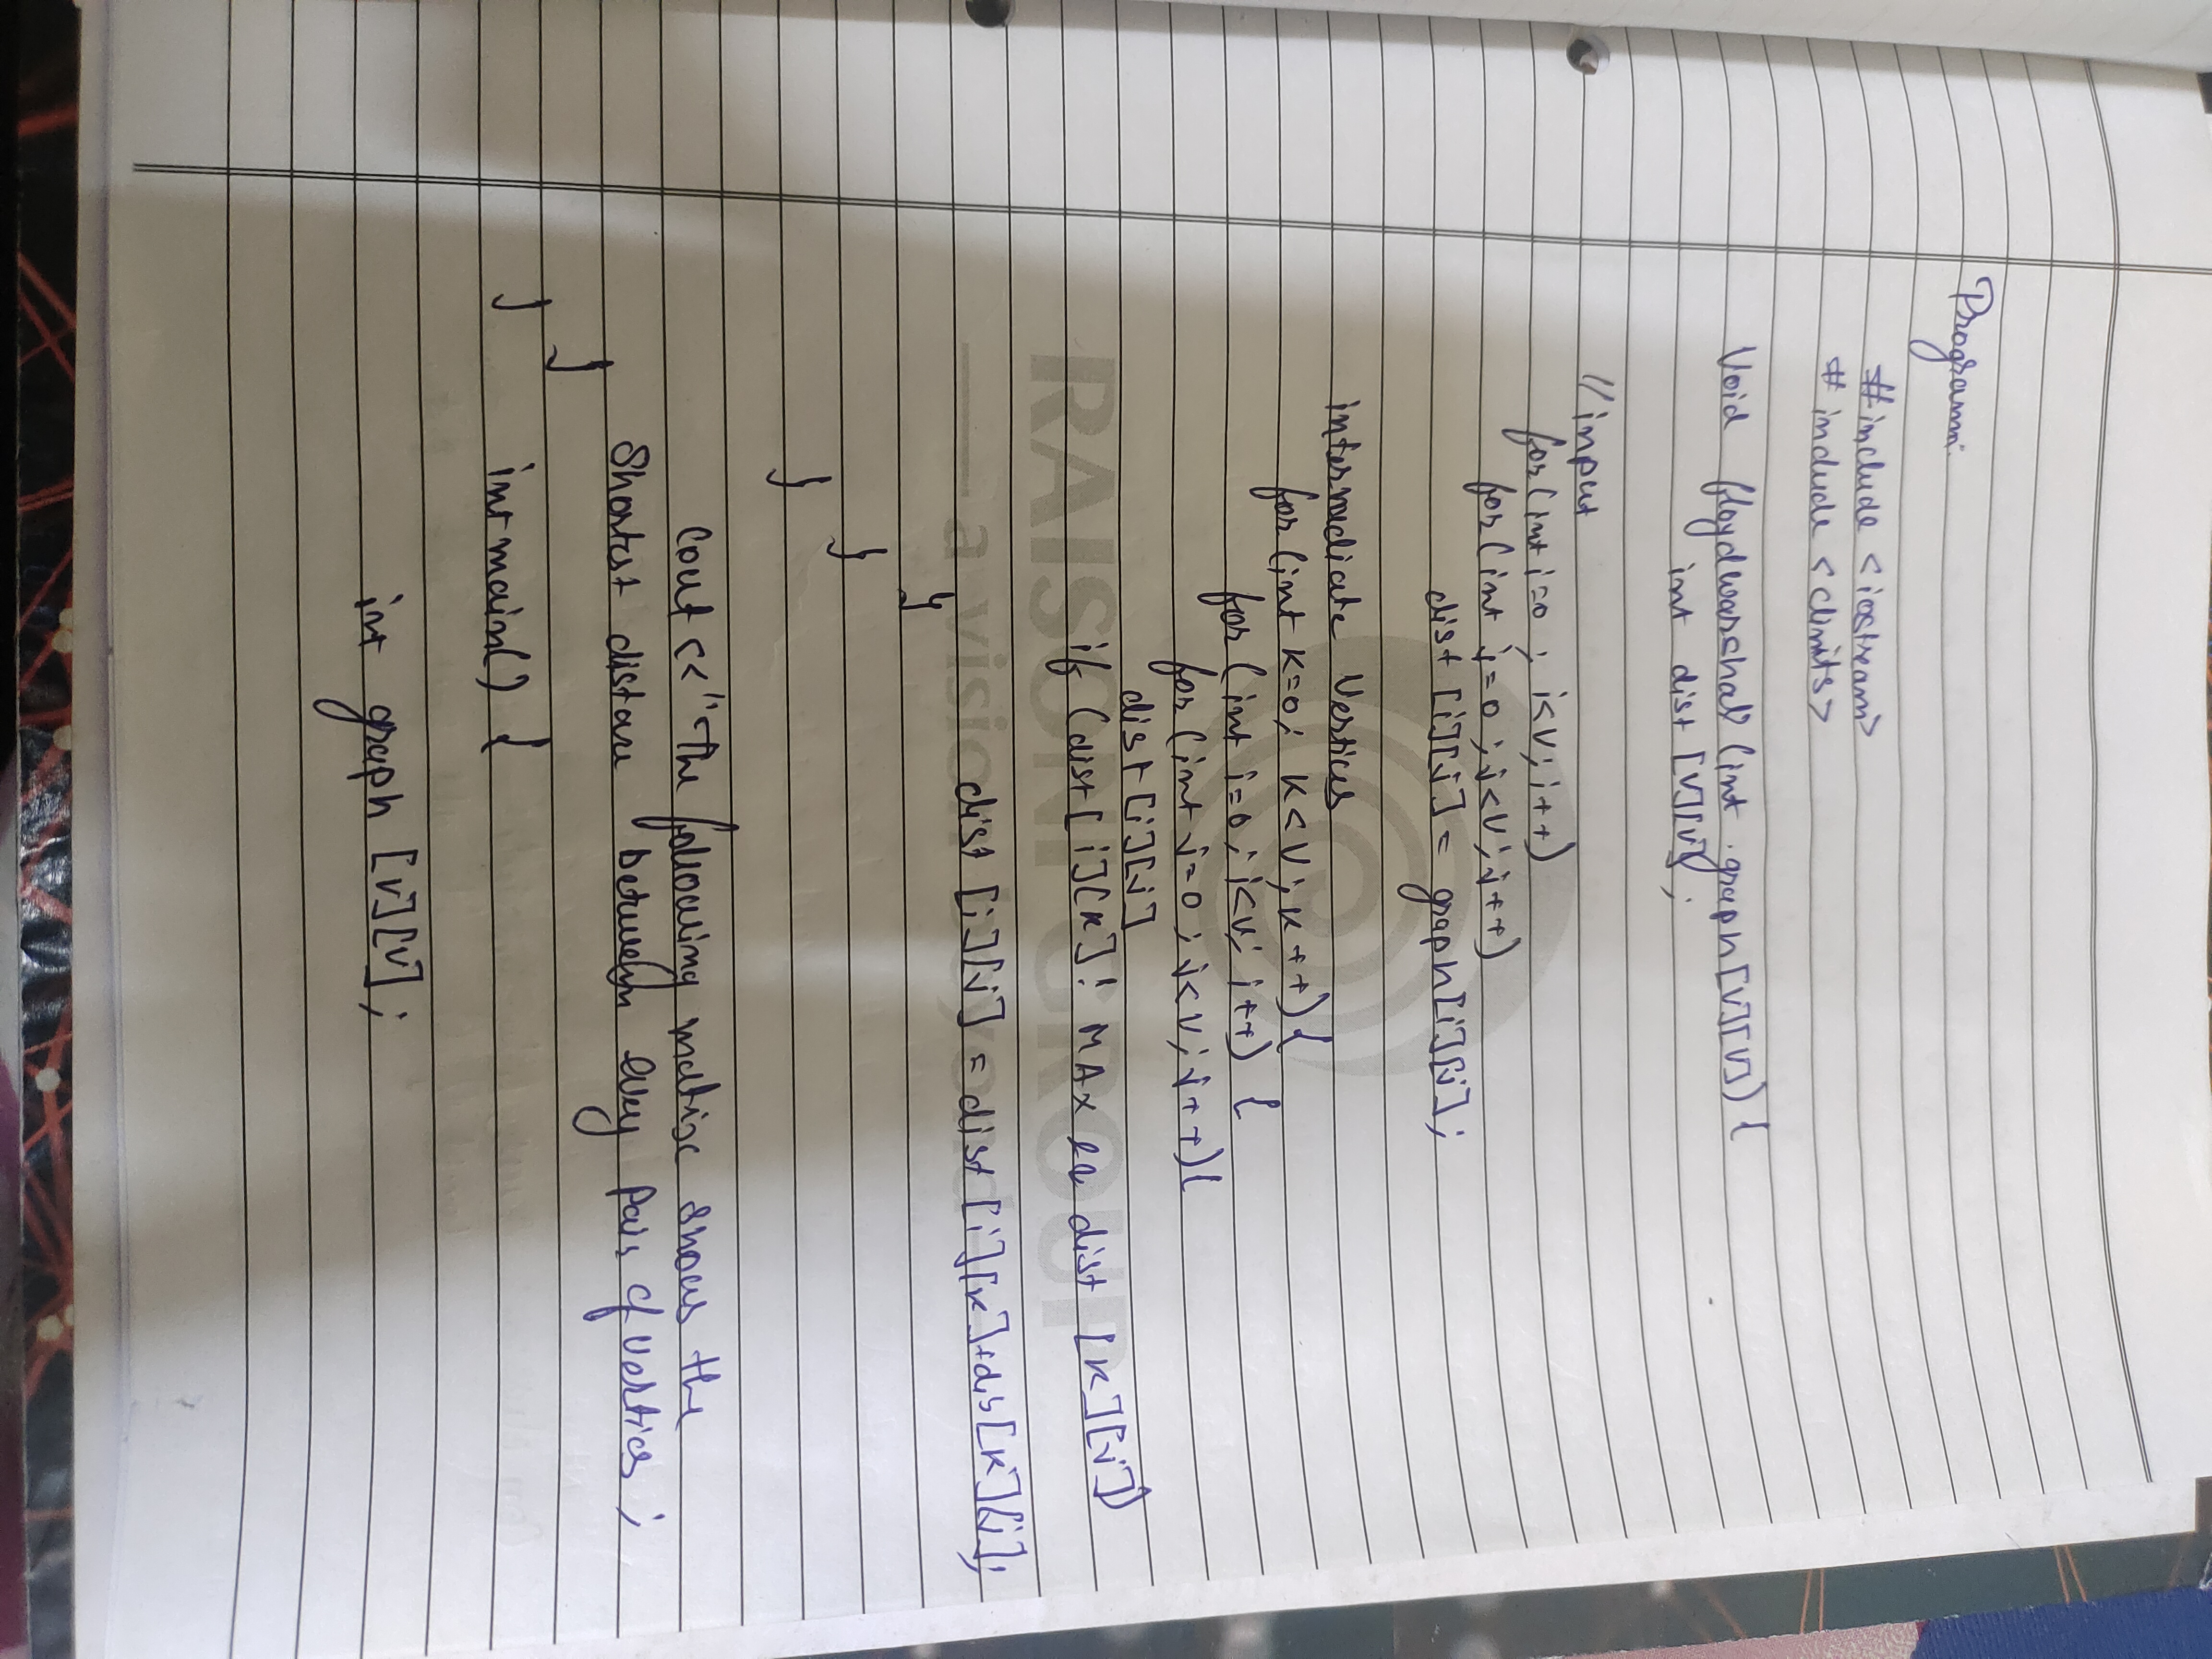 Program:
#include <iostream>
# include <climits>
Void floydwarshall (int graph[V][V]) {
int dist [V][V];
// input
for (int i=0 ; i<V; i++)
for (int j=0 ; j<V; j++)
dist [i][j] = graph[i][j];
intermediate Vertices
for (int K=0; K<V; K++) {
for (int i=0; i<V; i++) {
for (int j=0; j<V; j++) {
dist [i][j]
if (dist [i][K] ! MAX && dist [K][j])
RAISONI GROUP
dist [i][j] = dist [i][K]+dis[K][j];
a vision beyond
}
}
}
Cout << "The following matrix shows the
Shortest distance between every pair of vertices ;
}
} int main() {
int graph [V][V];